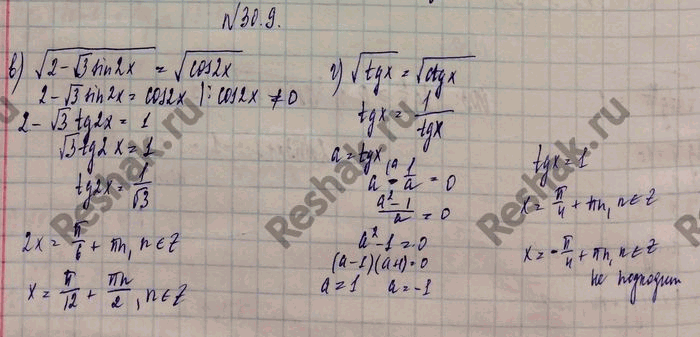 №30.9.
в) √(2-√3 sin2x) = √(cos2x)
2-√3 sin2x = cos2x |: cos2x ≠ 0
2-√3 tg2x = 1
√3 tg2x = 1
tg2x = 1/√3
2x = π/6 + πn, n∈Z
x = π/12 + πn/2, n∈Z
г) √(tgx) = √(ctgx)
tgx = 1/tgx
a = tgx
a - 1/a = 0
(a²-1)/a = 0
a²-1 = 0
(a-1)(a+1)=0
a=1 a=-1
tgx = 1
x = π/4 + πn, n∈Z
x = -π/4 + πn, n∈Z
не подходит
Reshak.ru
Reshak.ru
Reshak.ru
Reshak.ru